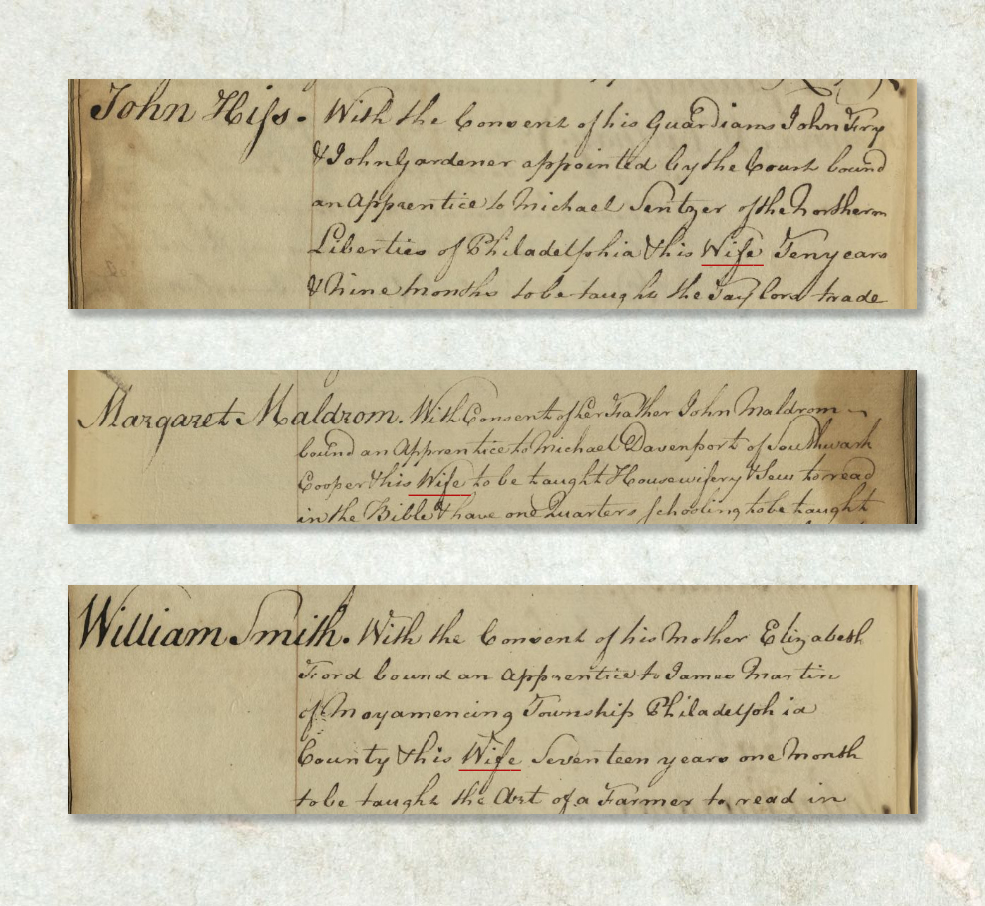 John Hiss. With the Consent of his Guardians John Fry
& John Gardener appointed by the Court bound
an Apprentice to Michael Sentzer of the Northern
Liberties of Philadelphia & his Wife Ten years
& Nine months to be taught the Taylors trade
Margaret Maldrom. With Consent of her Father John Maldrom
bound an Apprentice to Michael Davenport of Southwark
Cooper & his Wife to be taught Housewifery & Sew to read
in the Bible & have one Quarters schooling to be taught
William Smith. With the Consent of his Mother Elizabeth
Ford bound an Apprentice to James Martin
of Moyamencing Township Philadelphia
County & his Wife Seventeen years one Month
to be taught the Art of a Farmer to read in